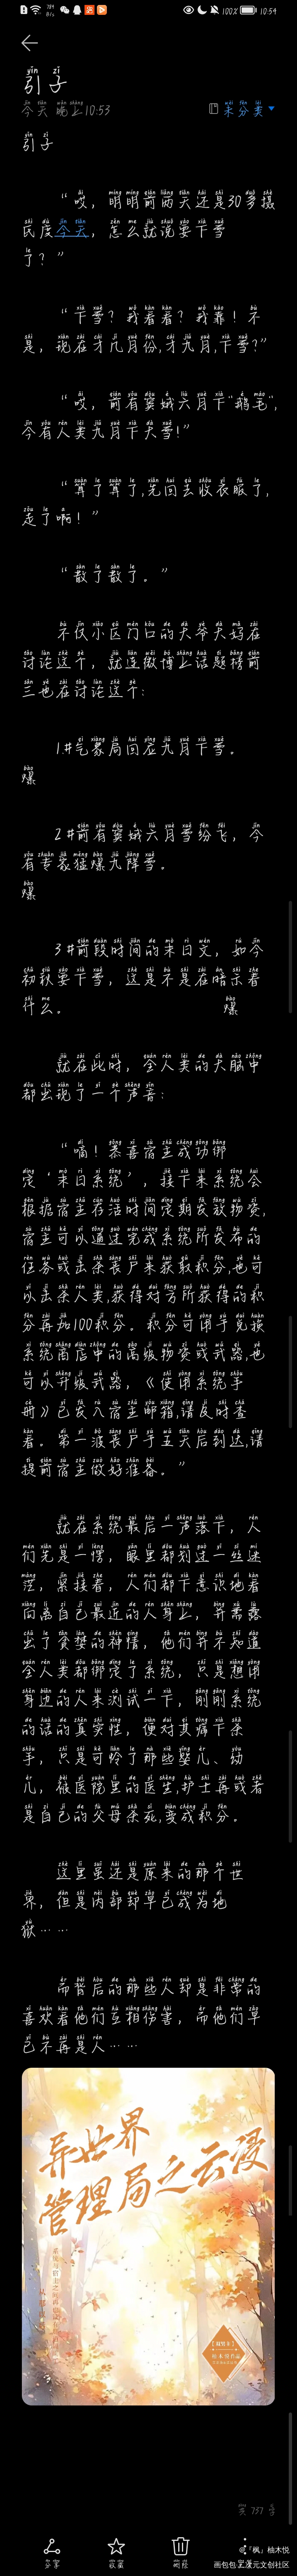 784 B/s 100% 10:54
引子
今天 晚上10:53 未分类
引子
“哎，明明前两天还是30多摄
氏度今天，怎么就说要下雪
了？”
“下雪？我看看？我靠！不
是，现在才几月份,才九月,下雪?”
“哎，前有窦娥六月下“鹅毛”,
今有人类九月下大雪!”
“算了算了,先回去收衣服了,
走了啊！”
“散了散了。”
不仅小区门口的大爷大妈在
讨论这个，就连微博上话题榜前
三也在讨论这个:
1.#气象局回应九月下雪。
爆
2#前有窦娥六月雪纷飞，今
有专家猛爆九降雪。
爆
3#前段时间的末日文，如今
初秋要下雪，这是不是在暗示着
什么。 爆
就在此时，全人类的大脑中
都出现了一个声音:
“嘀！恭喜宿主成功绑
定‘末日系统’，接下来系统会
根据宿主存活时间定期发放物资,
宿主可以通过完成系统所发布的
任务或击杀丧尸来获取积分,也可
以击杀人类,获得对方所获得的积
分再加100积分。积分可用于兑换
系统商店中的高级物资或武器,也
可以升级武器，《使用系统手
册》已发入宿主邮箱,请及时查
看。第一波丧尸于五天后到达,请
提前宿主做好准备。”
就在系统最后一声落下，人
们先是一愣，眼里都划过一丝迷
茫，紧接着，人们都下意识地看
向离自己最近的人身上，并暴露
出了贪婪的神情，他们并不知道
全人类都绑定了系统，只是想用
身边的人来测试一下，刚刚系统
的话的真实性，便对其痛下杀
手，只是可怜了那些婴儿、幼
儿，被医院里的医生,护士再或者
是自己的父母杀死,变成积分。
这里虽还是原来的那个世
界，但是内部却早已成为地
狱……
而背后的那些人却是非常的
喜欢看他们互相伤害，而他们早
已不再是人……
异世界
管理局之云漫
共 757 字
分享 收藏 删除 更多
@『枫』柚木悦
画包包·二次元文创社区